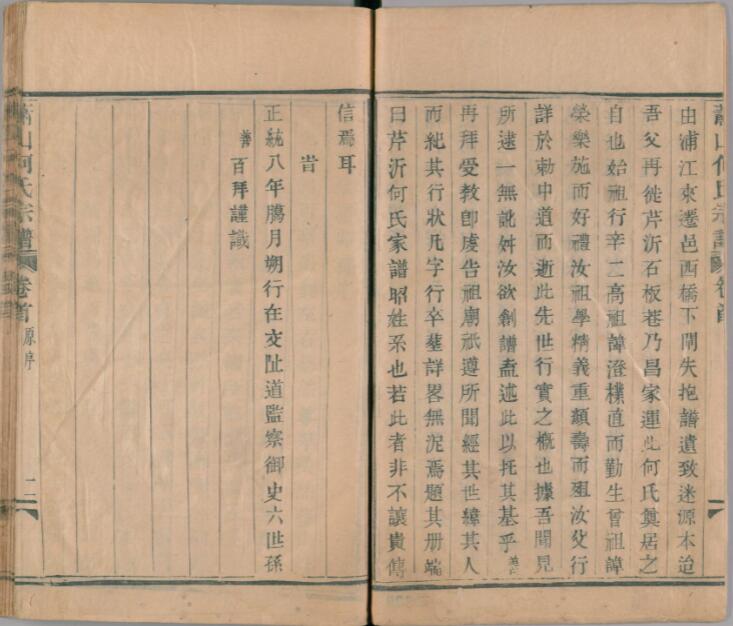 蕭山何氏宗譜 卷首
由浦江來遷邑西橋下鬧失抱譜遺致迷源本迨
吾父再徙芹沂石板巷乃昌家運此何氏奠居之
自也始祖行辛二高祖諱澄樸直而勤生曾祖諱
榮樂施而好禮汝祖學精義重頽壽而殂汝父行
詳於勅中道而逝此先世行實之概也據吾聞見
所逮一無訛舛汝欲創譜盍述此以托其基乎善
再拜受敎卽虔告祖廟祇遵所聞經其世緯其人
而紀其行狀凡字行卒塟詳畧無泥焉題其册端
曰芹沂何氏家譜昭姓系也若此者非不讓貴傳
信焉耳
旹
正統八年臈月朔行在交阯道監察御史六世孫
善百拜謹識
蕭山何氏宗譜 卷首 原序 二